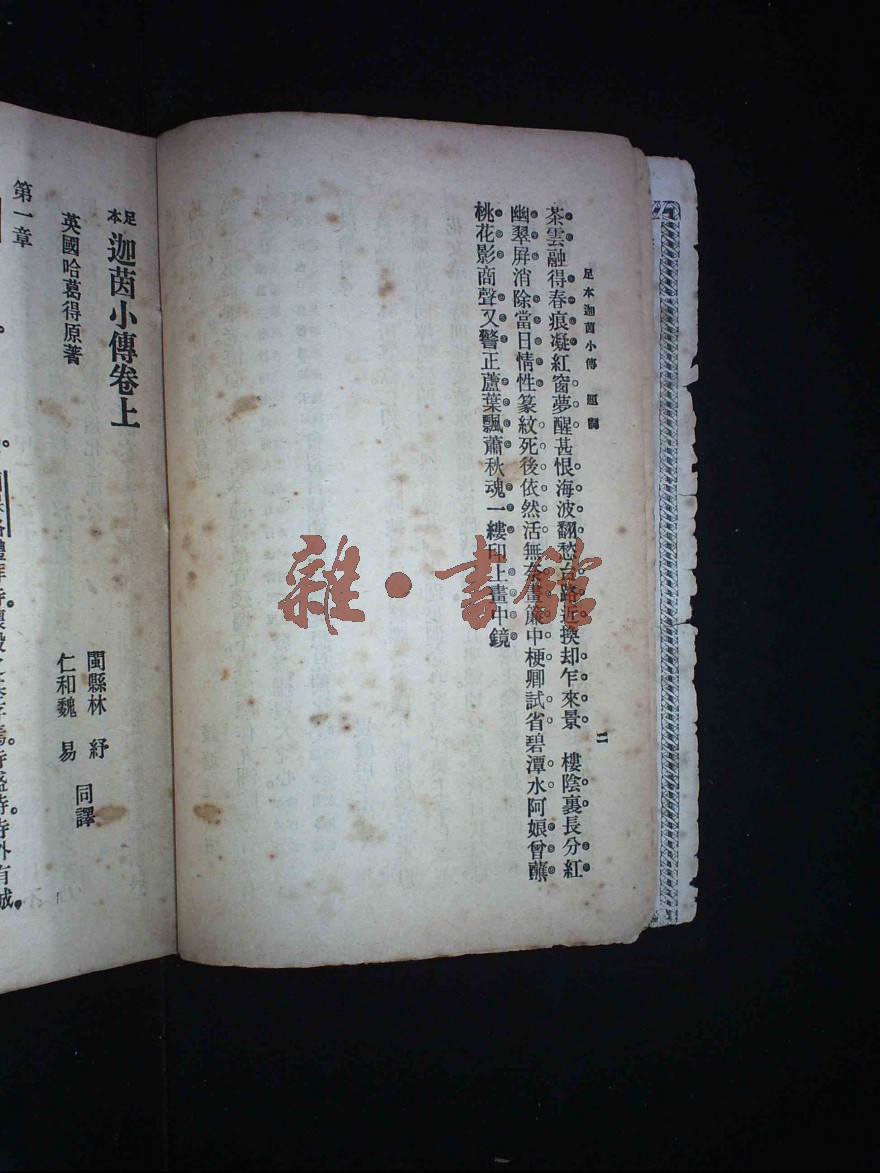 足本迦茵小傳 題詞
二
茶雲融得春痕凝紅窗夢醒甚恨海波翻愁台路近換却乍來景 樓陰裏長分紅
幽翠屏消除當日情性篆紋死後依然活無奈畫簾中梗卿試省碧潭水阿娘曾蘸
桃花影商聲又警正蘆葉飄蕭秋魂一縷印上畫中鏡
足本 迦茵小傳卷上
英國哈葛得原著
閩縣林 紓
仁和魏 易 同譯
第一章
雜·書館